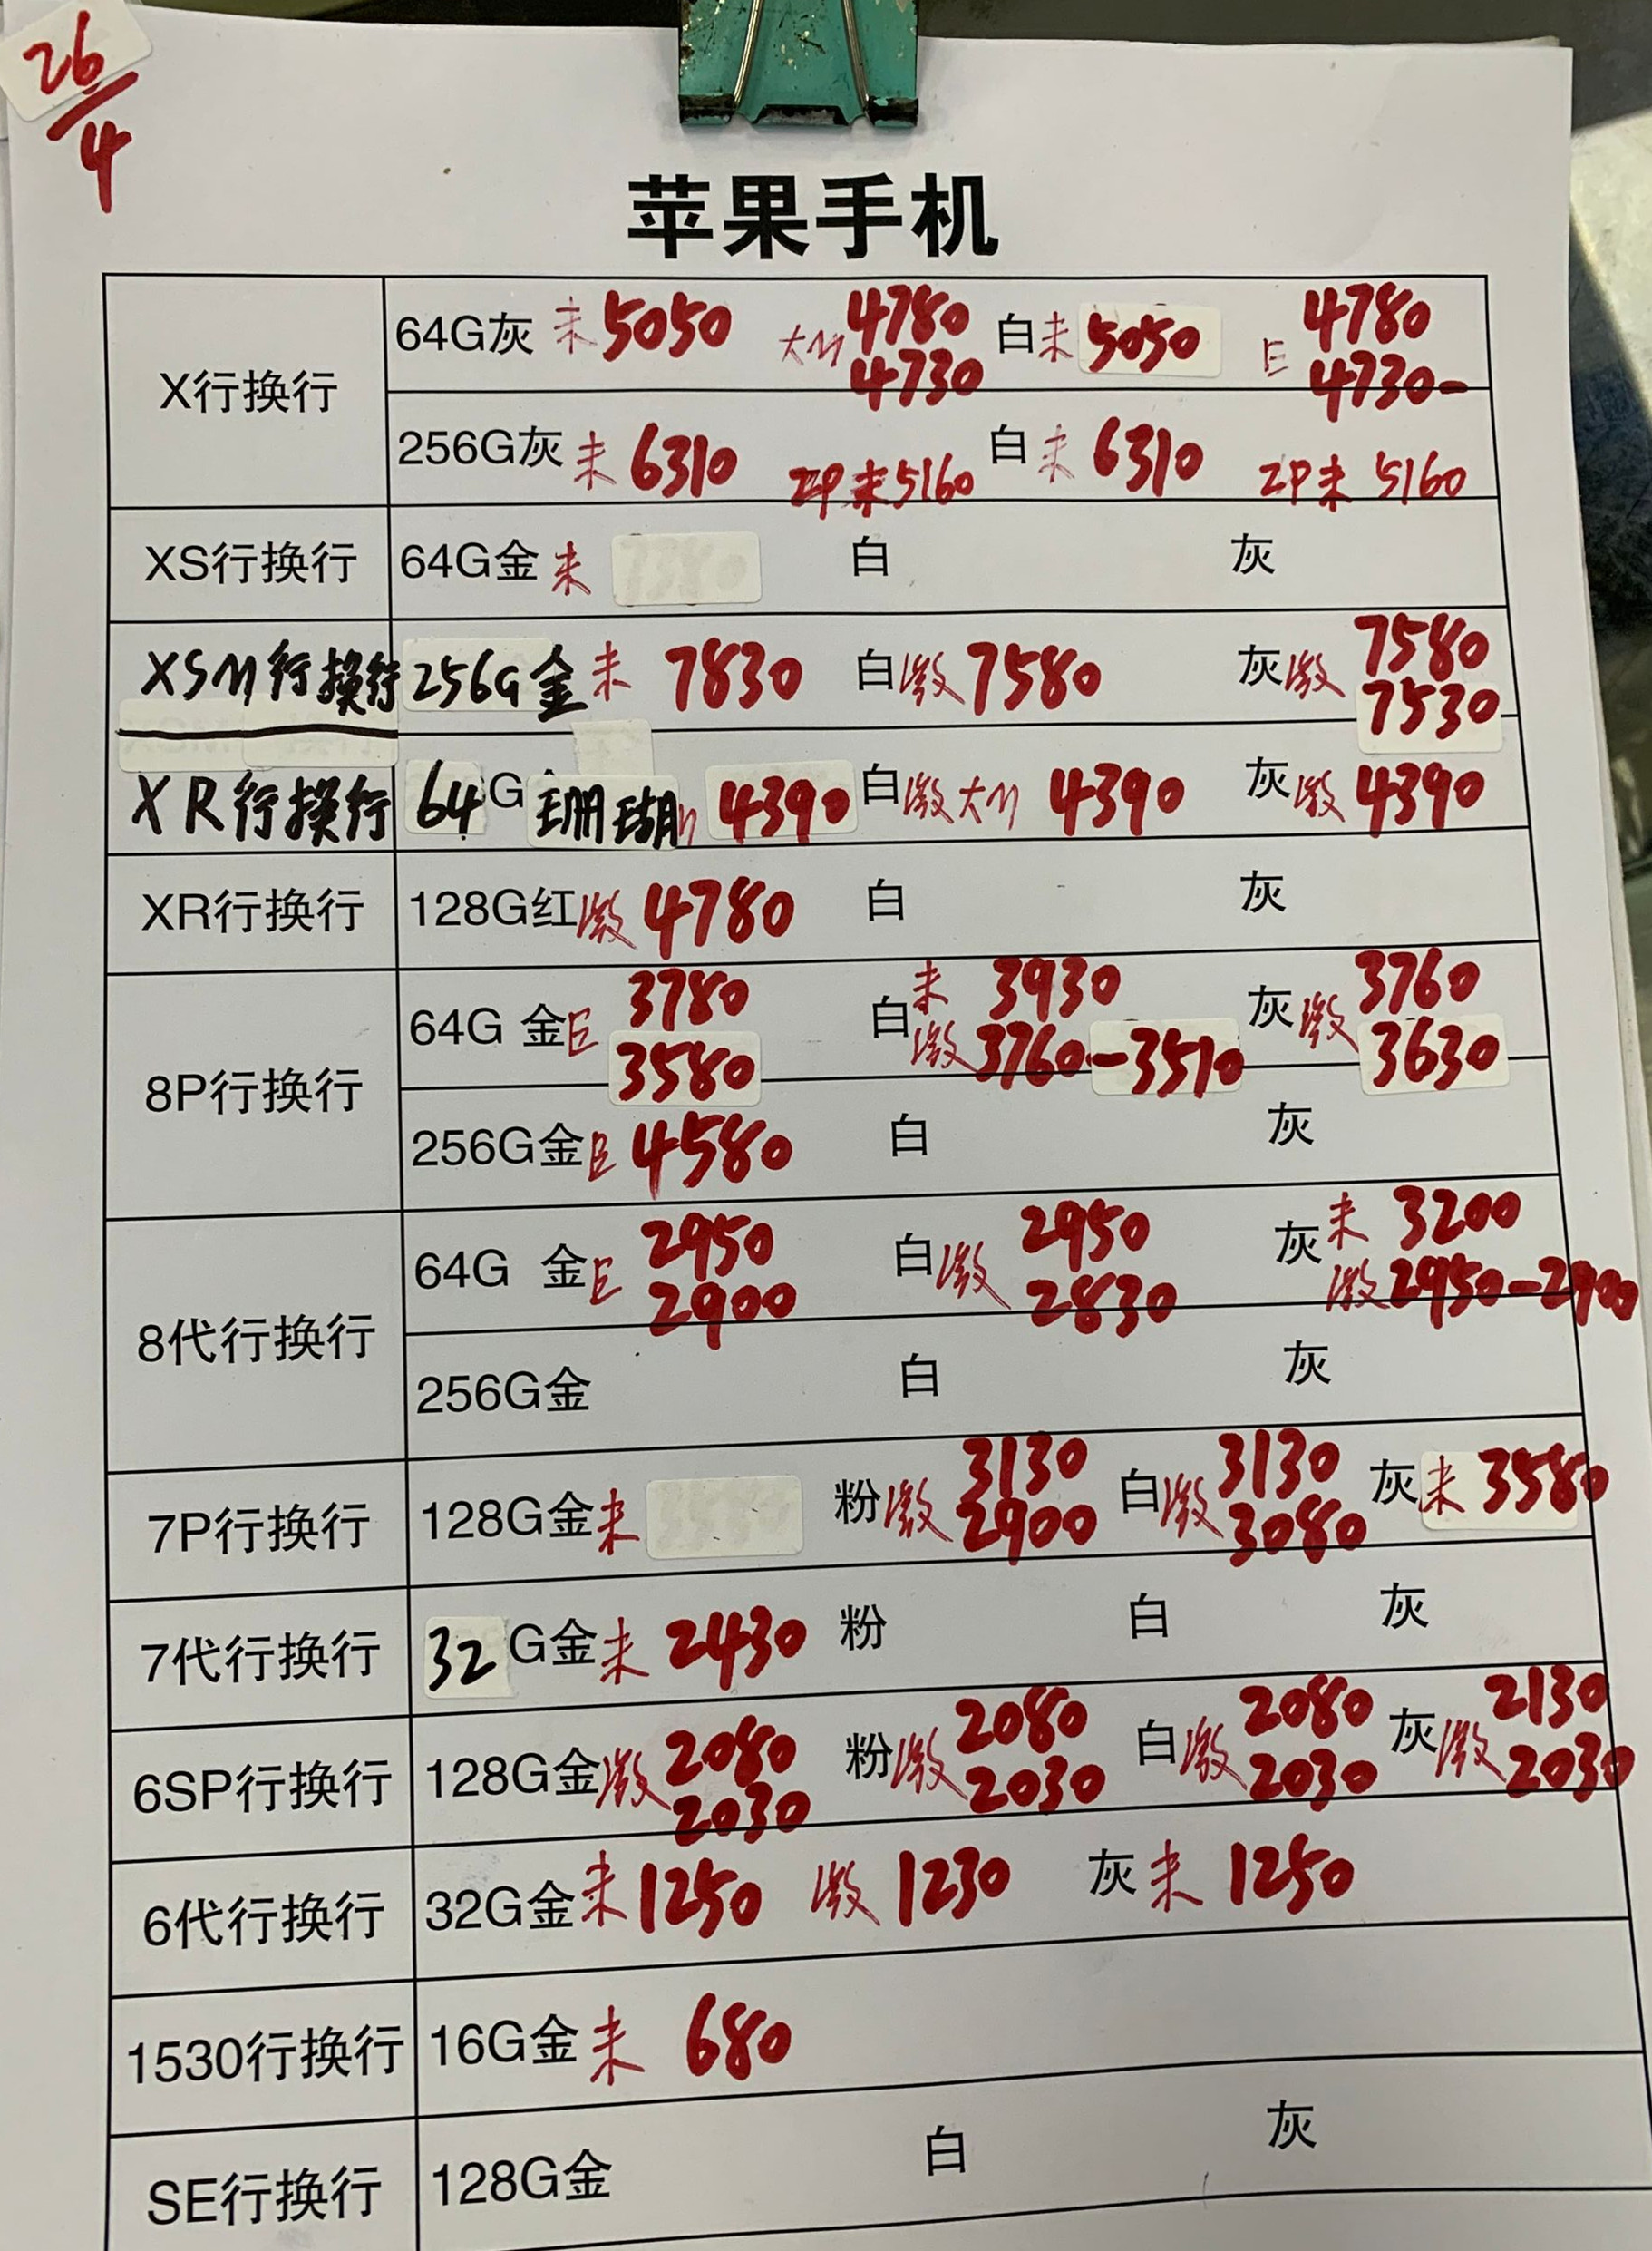 26/4
苹果手机
X行换行
64G灰 未 5050 大M 4780 白 未 5050 E 4780
4730 4730-
256G灰 未 6310 ZP未5160 白 未 6310 ZP未 5160
XS行换行 64G金 未 白 灰
XSM行换行 256G金 未 7830 白 激 7580 灰 激 7580
7530
XR行换行 64G 珊瑚 4390 白 激 大M 4390 灰 激 4390
XR行换行 128G红 激 4780 白 灰
8P行换行
64G 金 E 3780 白 未 3930 灰 激 3760
3580 激 3760-3510 3630
256G金 E 4580 白 灰
8代行换行
64G 金 E 2950 白 激 2950 灰 未 3200
2900 2830 激 2950-2900
256G金 白 灰
7P行换行 128G金 未 粉 激 3130 白 激 3130 灰 未 3580
2900 3080
7代行换行 32G金 未 2430 粉 白 灰
6SP行换行 128G金 激 2080 粉 激 2080 白 激 2080 灰 激 2130
2030 2030 2030 2030
6代行换行 32G金 未 1250 激 1230 灰 未 1250
1530行换行 16G金 未 680
SE行换行 128G金 白 灰